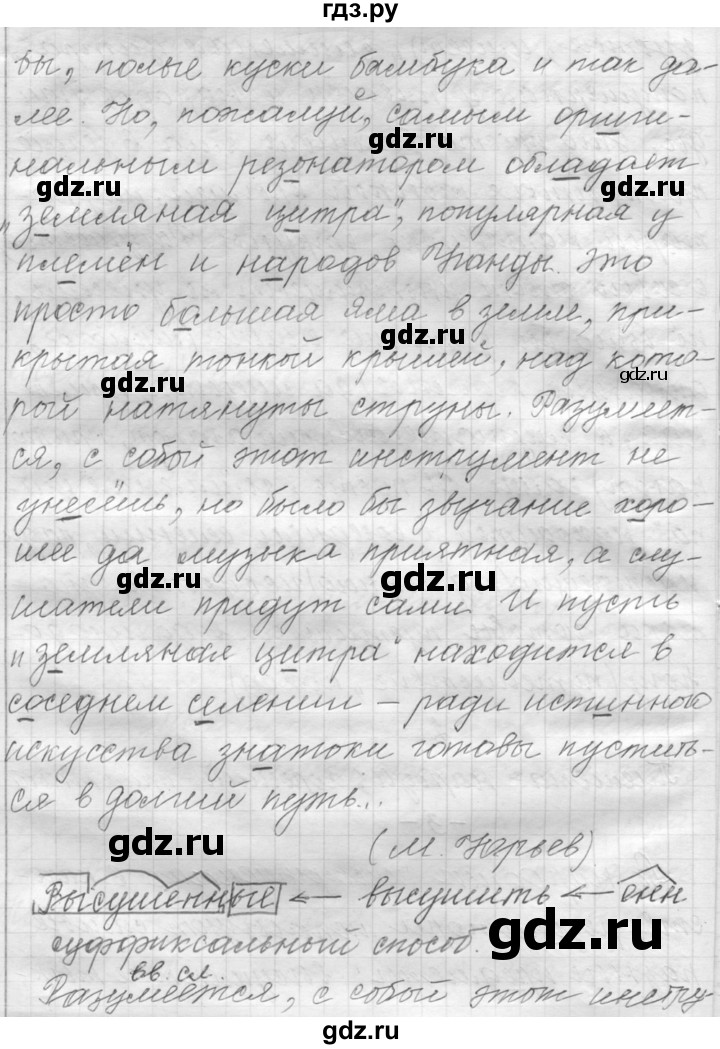 гдз.ру
бы, полые куски бамбука и так да-
лее. Но, пожалуй, самым ориги-
gdz.ru
нальным резонатором обладает
gdz.ru
gdz.ru
"земляная цитра", популярная у
племён и народов Уганды. Это
просто большая яма в земле, при-
gdz.ru
крытая тонкой крышей, над кото-
gdz.ru
gdz.ru
рой натянуты струны. Разумеет-
ся, с собой этот инструмент не
унесёшь, но было бы звучание хоро-
шее да музыка приятная, а слу-
gdz.ru
gdz.ru
шатели придут сами. И пусть
"земляная цитра" находится в
соседнем селении – ради истинного
искусства знатоки готовы пустить-
ся в долгий путь...
gdz.ru
(М. Юрьев)
Высушенные ← высушить ← енн
gdz.ru
суффиксальный способ.
вв. сл.
Разумеется, с собой этот инстру-
гдз.ру